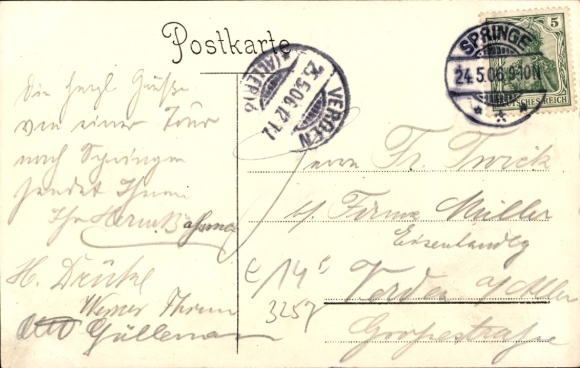 Postkarte
5
DEUTSCHES REICH
SPRINGE
24.5.06.9-10N
VERDEN
25.5.06.12
(ALLER)
Die herzl Grüße
von einer Tour
nach Springe
sendet Ihnen
Ihr Herm
H. Drücke
Werner
Otto
Herrn Fr. Twick
Firma Müller
Eisenhandlg
Verden a/Aller
Großestraße
E/14
3257